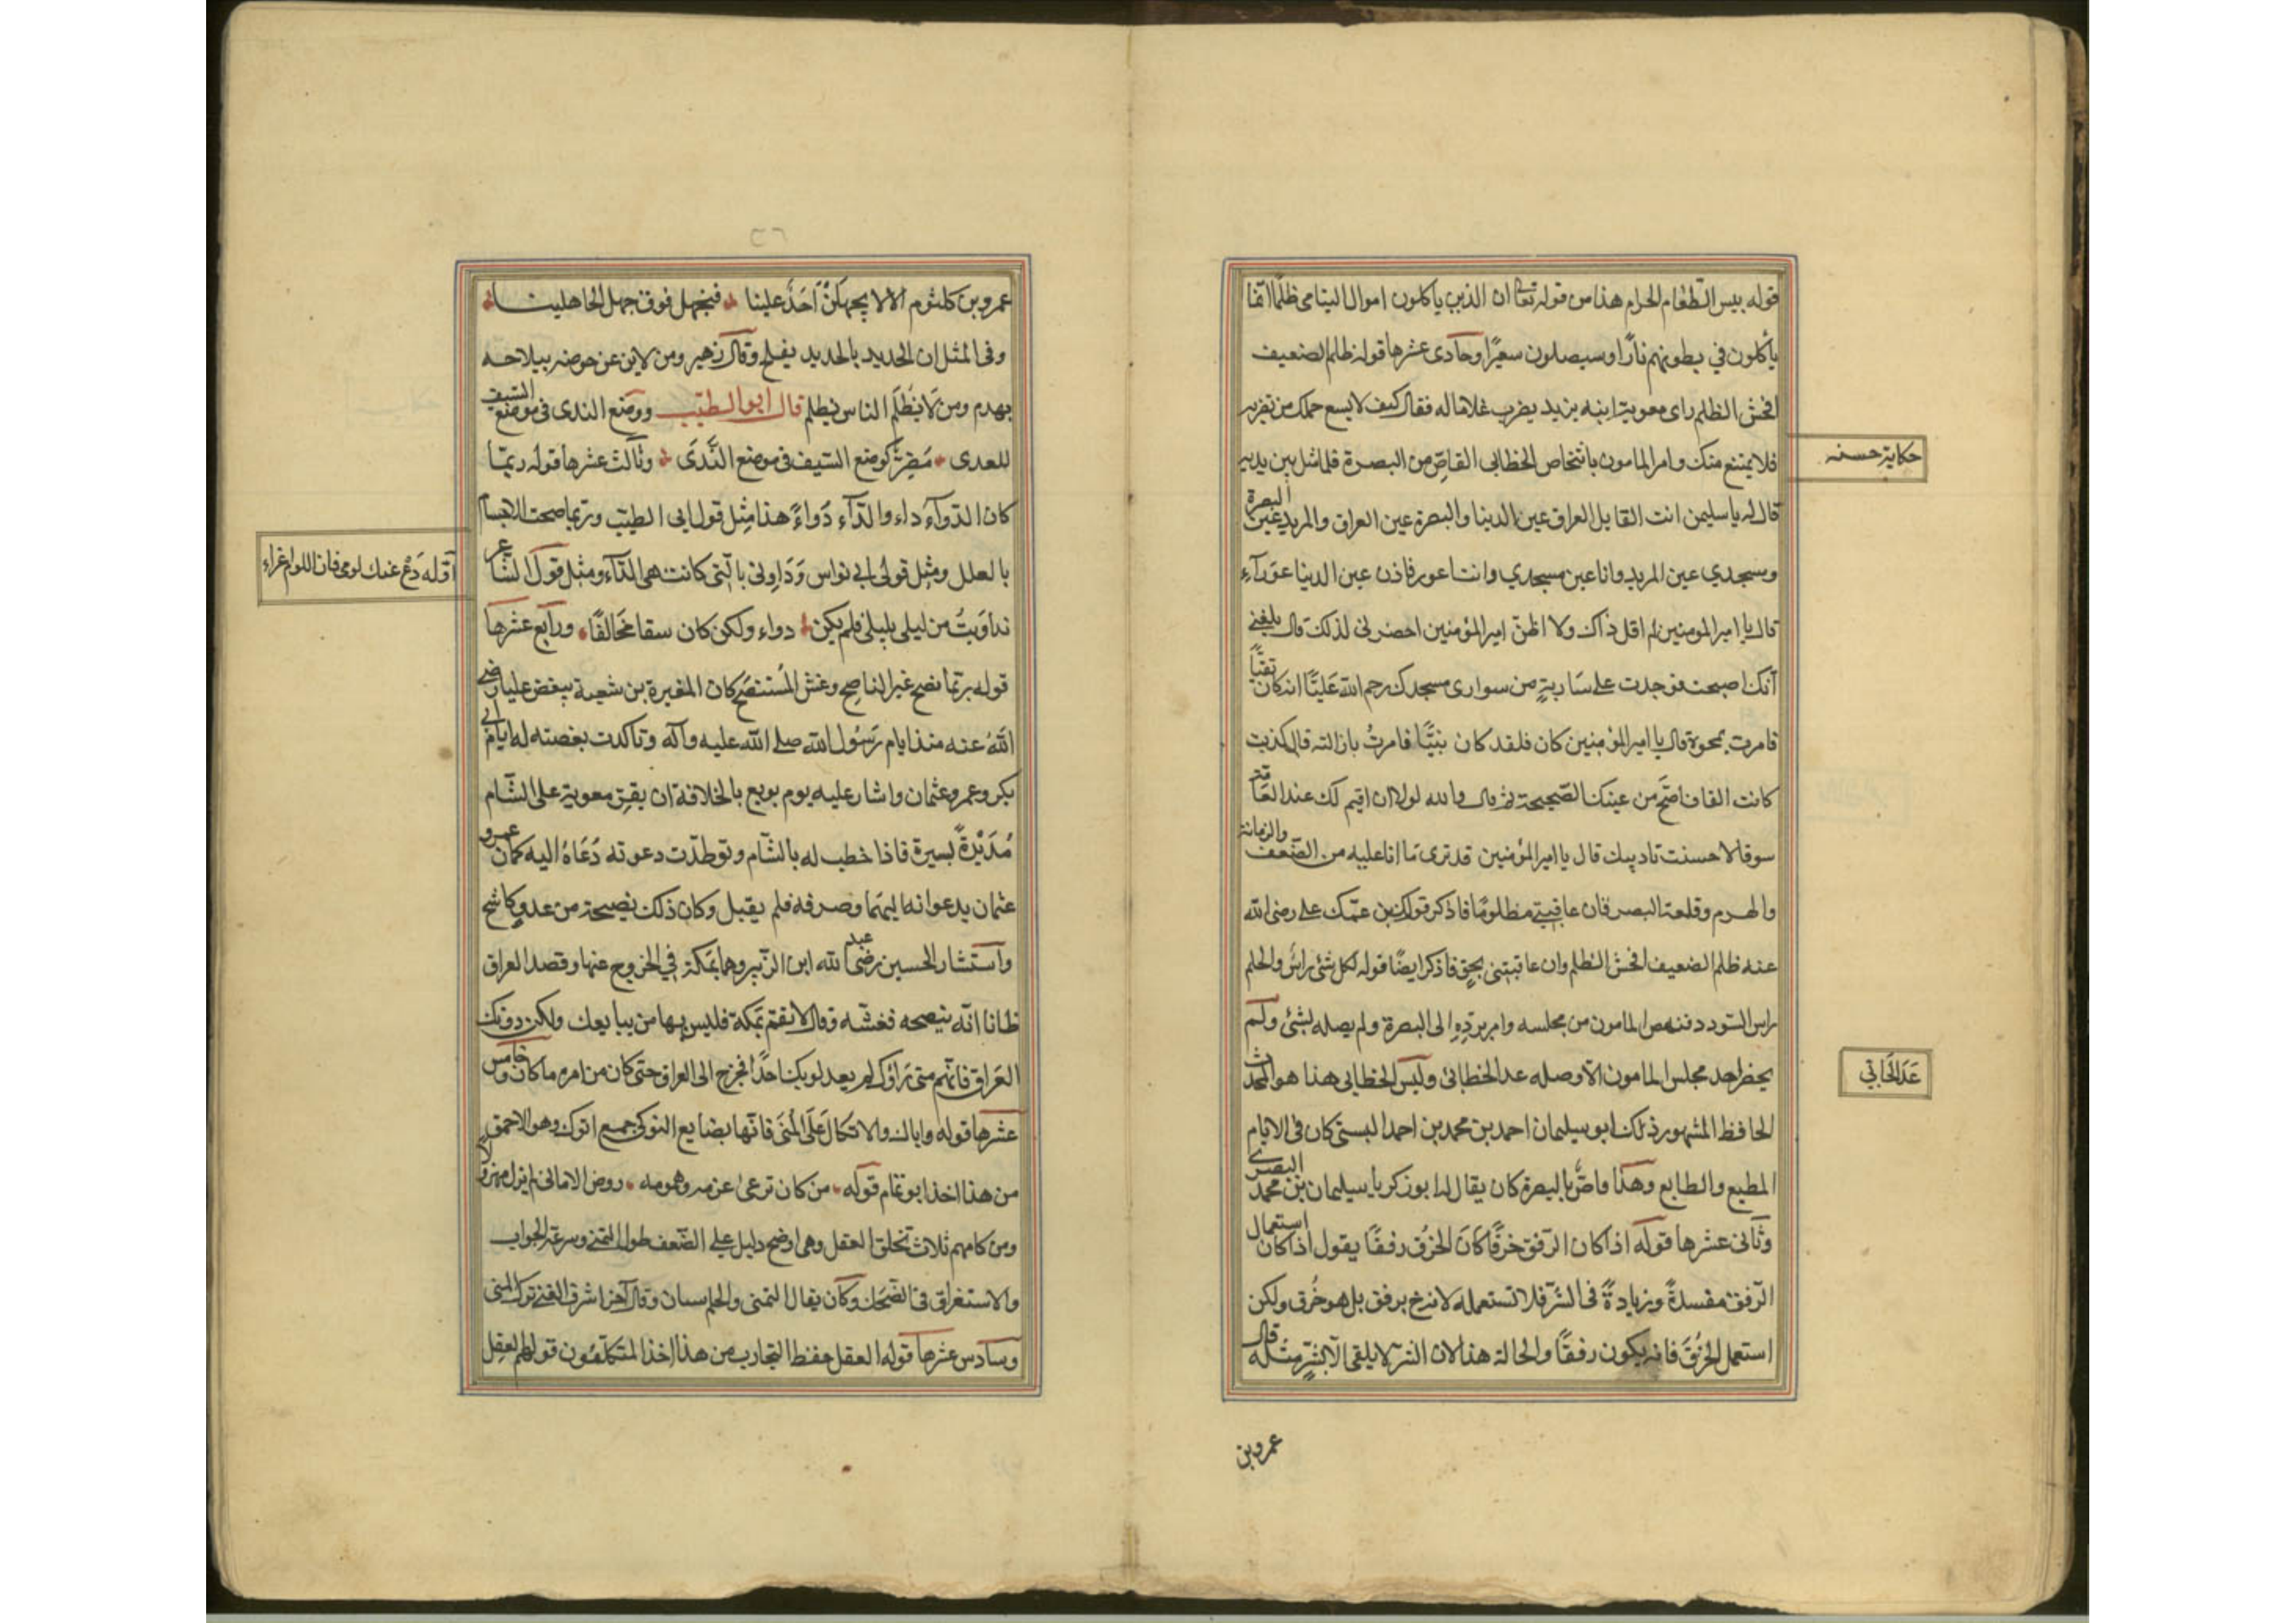 قوله بيس الطعام الحرام هذا من قوله تعالى ان الذين ياكلون اموال اليتامى ظلمًا انما
يأكلون في بطونهم نارًا وسيصلون سعيرًا وحادى عشرها قوله ظلم الضعيف
افحش الظلم راى معوية ابنه يزيد يضرب غلاما له فقال كيف لا يسع حملك من تضربه
فلا يمتنع منك وامر المامون باشخاص الخطابى القاصّ من البصرة فلما مثل بين يديه
حكاية حسنه
قال له يا سليمن انت القايل العراق عين الدنيا والبصرة عين العراق والمربد عين البصرة
ومسجدي عين المربد وانا عين مسجدي وانت اعور فاذن عين الدنيا عورآء
قال يا امير المومنين لم اقل ذاك ولا اظنّ امير المؤمنين احضرنى لذلك قال بلغنى
أنك اصبحت فوجدت على سَاريةٍ من سوارى مسجدك رحم الله عَليًّا انه كان تقيًّا
فامرت بمحوه قال يا امير المؤمنين كان فلقد كان نبيًّا فامرتُ بازالته قال كذبت
كانت القاف اصَحّ من عينك الصّحيحة ثم قال والله لولا ان اقيم لك عند العامّة
سوقا لاحسنت تاديبك قال يا امير المؤمنين قد ترى مَا انا عليه من الضعف والزمانة
والهرم وقلعة البصر فان عاقبتنى مظلومًا فاذكر قول ابن عمّك على رضى الله
عنه ظلم الضعيف افحش الظلم وان عاقبتنى بحقٍ فاذكر ايضًا قوله لكل شئ راسٌ والحلم
راس السّودد فنهض المامون من مجلسه وامر بردّهِ الى البصرة ولم يصله بشئ ولم
يحضر احد مجلس المامون الا وصله عدا الخطابى وليس الخطابى هذا هو المحدث
عَدَ الخَابِي
الحافظ المشهور ذلك ابو سليمان احمد بن محمد بن احمد البستى كان فى الايام
المطيع والطايع وهذا قاصٌّ بالبصرة كان يقال له ابو زكريا سليمان بن محمد البصرى
وثانى عشرها قوله اذا كان الرّفق خرقًا كان الخرُق رفقًا يقول اذا كان استعمال
الرّفق مفسدةً وزيادةً فى الشّر فلا تستعمله لانه ليس برفق بل هو خُرق ولكن
استعمل الخُرقَ فانه يكون رفقًا والحالة هذه لان الشر لا يلقى الّا بشرٍّ مثله قال
عمرو بن
عمرو بن كلثوم الا لا يجهلنْ أحَدٌ علينا فنجهل فوق جهل الجاهلينا
وفى المثل ان الحديد بالحديد يفلح وقال زهير ومن لا يذد عن حوضه بسلاحه
يهدم ومن لا يظلَم الناس يظلم قال ابو الطيّب ووضع الندى فى موضع السّيف
للعدى مُضِرٌّ كوضع السّيف فى موضع النَّدَى وثالث عشرها قوله ربّما
كان الدّوآءُ داء والدّآء دَواءً هذا مِثل قول ابى الطيّب وربّما صحت الاجسام
بالعلل ومثل قول ابى نواس وَدَاوِنى بالّتى كانت هى الدّاء ومثل قول الشاعر
أقله دَعْ عنك لومى فان اللوم اغراء
تداوَيتُ من ليلى بليلى فلم يكن دواء ولكن كان سقما مخالفًا ورابع عشرها
قوله ربّما نصح غير الناصِح وغش المُستنصَح كان المغيرة بن شعبة يبغض عليا رضى
اللهُ عنه منذ ايام رَسُول الله صلى الله عليه وآله وتاكدت بغضته له ايام ابى
بكر وعمر وعثمان واشار عليه يوم بويع بالخلافة ان يقر معوية على الشّام
مُدَيْدَةً يسيرة فاذا خطب له بالشّام وتوطدّت دعوته دُعَاهُ اليه كما كان عمرو
عثمان يدعوانه اليهما وصرفه فلم يقبل وكان ذلك نصيحة من عدوٍ كاشح
واستشار الحسين رضى الله ابن الزّبير وهما بمكة في الخروج عنها وقصد العراق
ظانا انّه ينصحه فغشّه وقال لا تقم بمكة فليس بها من يبايعك ولكن دونك
العراق فانّهم متى رَاوْك لم يعدلوا بك احدًا فخرج الى العراق حتى كان من امره ما كان وخامس
عشرها قوله واياك والاتكال عَلَى المُنَى فانّها بضايع النوكى جمع انوك وهو الاحمق
من هذا اخذ ابو تمّام قوله من كان ترعى عزمه وهمومه روض الامانى لم يزل مهزولا
ومن كلامهم ثلاث تخلق العقل وهى اوضح دليل على الضّعف طول التمنى وسرعة الجواب
والاستغراق فى الضّحك وكان يقال التمنى والحلم سيان وقال آخر اشرف الغنى ترك المنى
وسادس عشرها قوله العقل حفظ التجارب من هذا اخذ المتكلمون قولهم العقل